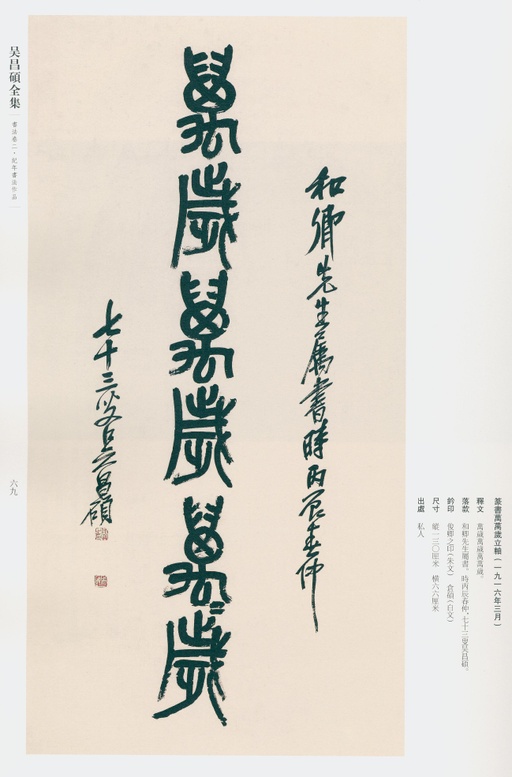 篆書萬萬歲立軸(一九一六年三月)
釋文 萬歲萬歲萬萬歲。
落款 和卿先生屬書,時丙辰春仲,七十三叟吳昌碩。
鈐印 俊卿之印(朱文) 倉碩(白文)
尺寸 縱一三〇厘米 橫六六厘米
出處 私人
和卿先生屬書時丙辰春仲
萬歲萬歲萬〻歲
七十三叟吳昌碩
吴昌碩全集
書法卷二·紀年書法作品
六九